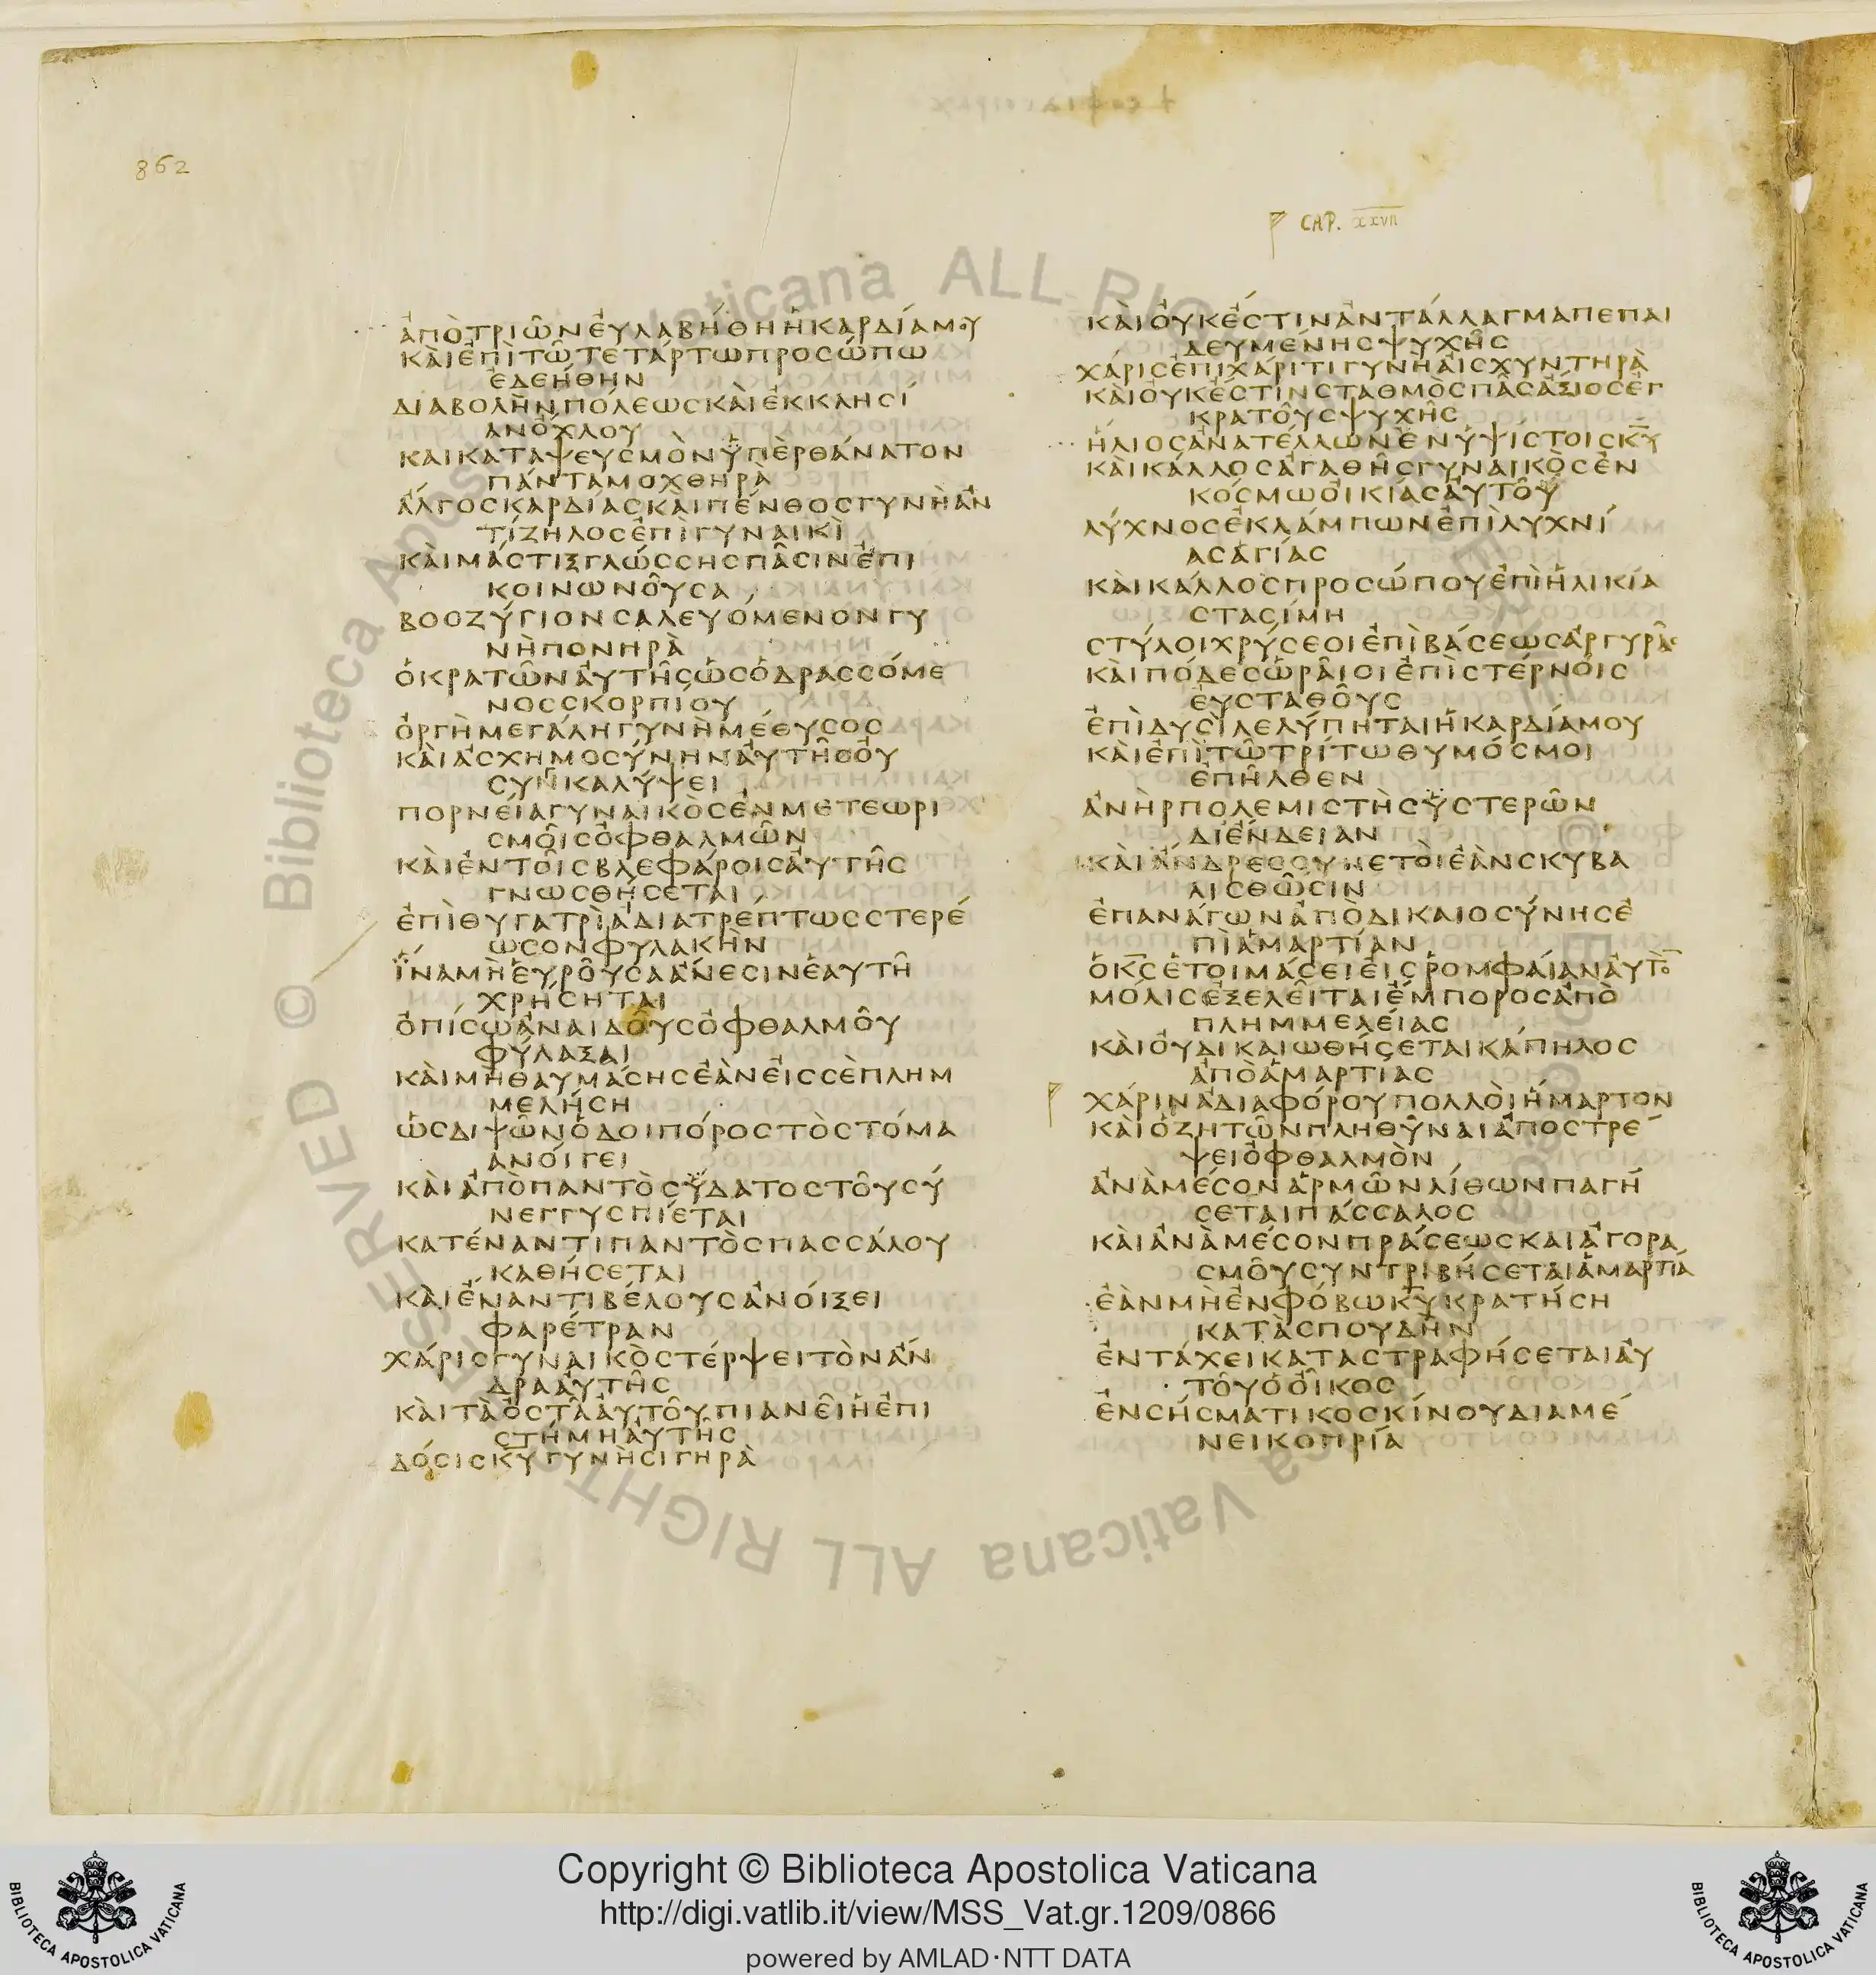 862
CAP. XXVII
ἀπὸτριῶνἐυλαβήθηἡκαρδίαμου
κὰιἐπὶτῶτετάρτωπροσώπω
ἐδεήθην
διαβολὴνπόλεωσκὰιἐκκλησί
ανὄχλου
καικαταψευσμὸνϋπὲρθάνατον
πάνταμοχθηρὰ
ἄλγοσκαρδίασκὰιπένθοσγυνὴἀν
τίζηλοσἐπὶγυναικὶ
κὰιμάστιξγλώσσησπᾶσινἐπι
κοινωνοῦσα
βοοζύγιονσαλευόμενονγυ
νὴπονηρὰ
ὁκρατῶναὐτῆσὡσὁδρασσόμε
νοσσκορπίου
ὀργὴμεγάληγυνὴμέθυσοσ
κὰιἀσχημοσύνηναὐτῆσὀυ
συνκαλύψει
πορνείαγυναικὸσἐνμετεωρι
σμοῖσὀφθαλμῶν
κὰιἐντοῖσβλεφάροισἀυτῆσ
γνωσθήσεται
ἐπὶθυγατρὶἀδιατρέπτωσστερέ
ωσονφυλακὴν
ἵναμὴἑυροῦσαἄνεσινἑαυτῆ
χρήσηται
ὀπίσωἀναιδοῦσὀφθαλμοῦ
φύλαξαι
κὰιμὴθαυμάσησἐὰνἐισσὲπλημ
μελήση
ὡσδιψῶνὁδοιπόροστὸστόμα
ανοίγει
κὰιἀπὸπαντὸσϋδατοστοῦσύ
νεγγυσπίεται
κατέναντιπαντὸσπασσάλου
καθήσεται
κὰιἔναντιβέλουσἀνοίξει
φαρέτραν
χάρισγυναικὸστέρψειτὸνἄν
δρααὐτῆσ
κὰιτὰὀστᾶἀυτοῦπιανεῖἡἐπι
στήμηἀυτῆσ
δόσισκυγυνὴσιγηρὰ
κὰιὀυκἔστινἀντάλλαγμαπεπαι
δευμένησψυχῆσ
χάρισἐπιχάριτιγυνὴἀισχυντηρὰ
κὰιὀυκἔστινσταθμὸσπᾶσἄξιοσἐγ
κρατοῦσψυχῆσ
ἥλιοσἀνατέλλωνἐνὑψίστοισκυ
κὰικάλλοσἀγαθῆσγυναικὸσἐν
κόσμωὀικίασἀυτοῦ
λύχνοσἐκλάμπωνἐπὶλυχνί
ασἁγίας
κὰικάλλοσπροσώπουἐπὶἡλικία
στασίμη
στύλοιχρύσεοιἐπὶβάσεωσἀργυρᾶσ
κὰιπόδεσὡρᾶιοιἐπὶστέρνοισ
ἐυσταθοῦσ
ἐπὶδυσὶλελύπηταιἡκαρδίαμου
κὰιἐπὶτῶτρίτωθυμόσμοι
ἐπῆλθεν
ἀνὴρπολεμιστὴσὑστερῶν
διἔνδειαν
κὰιἄνδρεσσυνετὸιἐὰνσκυβα
λισθῶσιν
ἐπανάγωνἀπὸδικαιοσύνησἐ
πὶἁμαρτίαν
ὁκσἑτοιμάσειἐισῥομφαίανἀυτο
μόλισἐξελεῖταιἔμποροσἀπὸ
πλημμελείασ
κὰιὀυδικαιωθήσεταικάπηλοσ
ἀπὸἁμαρτιασ
χάρινἀδιαφόρουπολλὸιἥμαρτον
κὰιὁζητῶνπληθῦναιἀποστρέ
ψειὀφθαλμὸν
ἀνὰμέσονἁρμῶνλίθωνπαγή
σεταιπάσσαλοσ
κὰιἀνὰμέσονπράσεωσκαιἀγορα
σμοῦσυντριβήσεταιἁμαρτία
ἐὰνμὴἐνφόβωκυκρατήση
κατὰσπουδὴν
ἐντάχεικαταστραφήσεταιἀυ
τοῦὁὀῖκοσ
ἐνσήσματικοσκίνουδιαμέ
νεικοπρία
Copyright © Biblioteca Apostolica Vaticana
http://digi.vatlib.it/view/MSS_Vat.gr.1209/0866
powered by AMLAD·NTT DATA
BIBLIOTECA APOSTOLICA VATICANA
BIBLIOTECA APOSTOLICA VATICANA